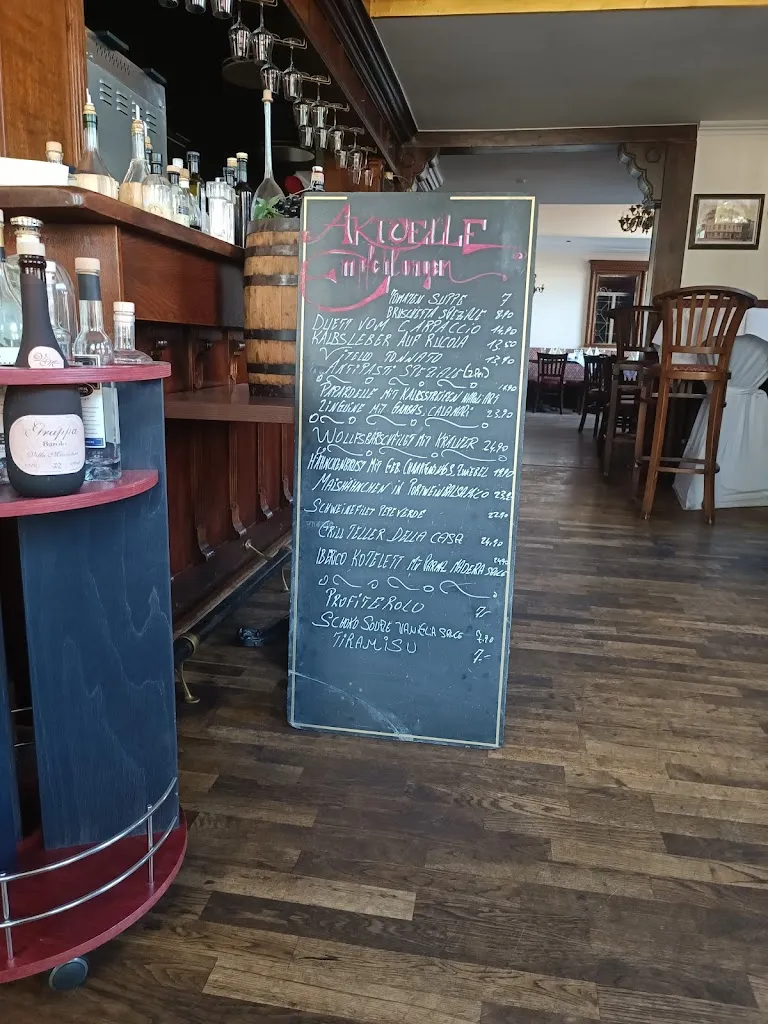 AKTUELLE
Empfehlungen
TOMATEN SUPPE 7
BRUSCHETTA SPEZIALE 8,90
DUETT VOM CARPACCIO 14,90
KALBSLEBER AUF RUCOLA 13,50
VITELLO TONNATO 13,90
ANTIPASTI SPEZIALE (2 Pers)
PAPARDELLE MIT KALBSSTREIFEN
LINGUINE MIT GAMBAS, CALAMARI 23,90
WOLFSBARSCHFILET MIT KRÄUTER 24,90
HÄHNCHENBRUST MIT GEB. ZWIEBEL 19,90
MAISHÄHNCHEN IN PORTWEINBALSAMICO
SCHWEINEFILET PEPE VERDE 22,90
GRILL TELLER DELLA CASA 24,90
IBERICO KOTELETT MIT MADEIRA SAUCE 24,90
PROFITEROLO 7,-
SCHOKO SOUFLE VANILLA 7,90
TIRAMISU 7,-
Grappa